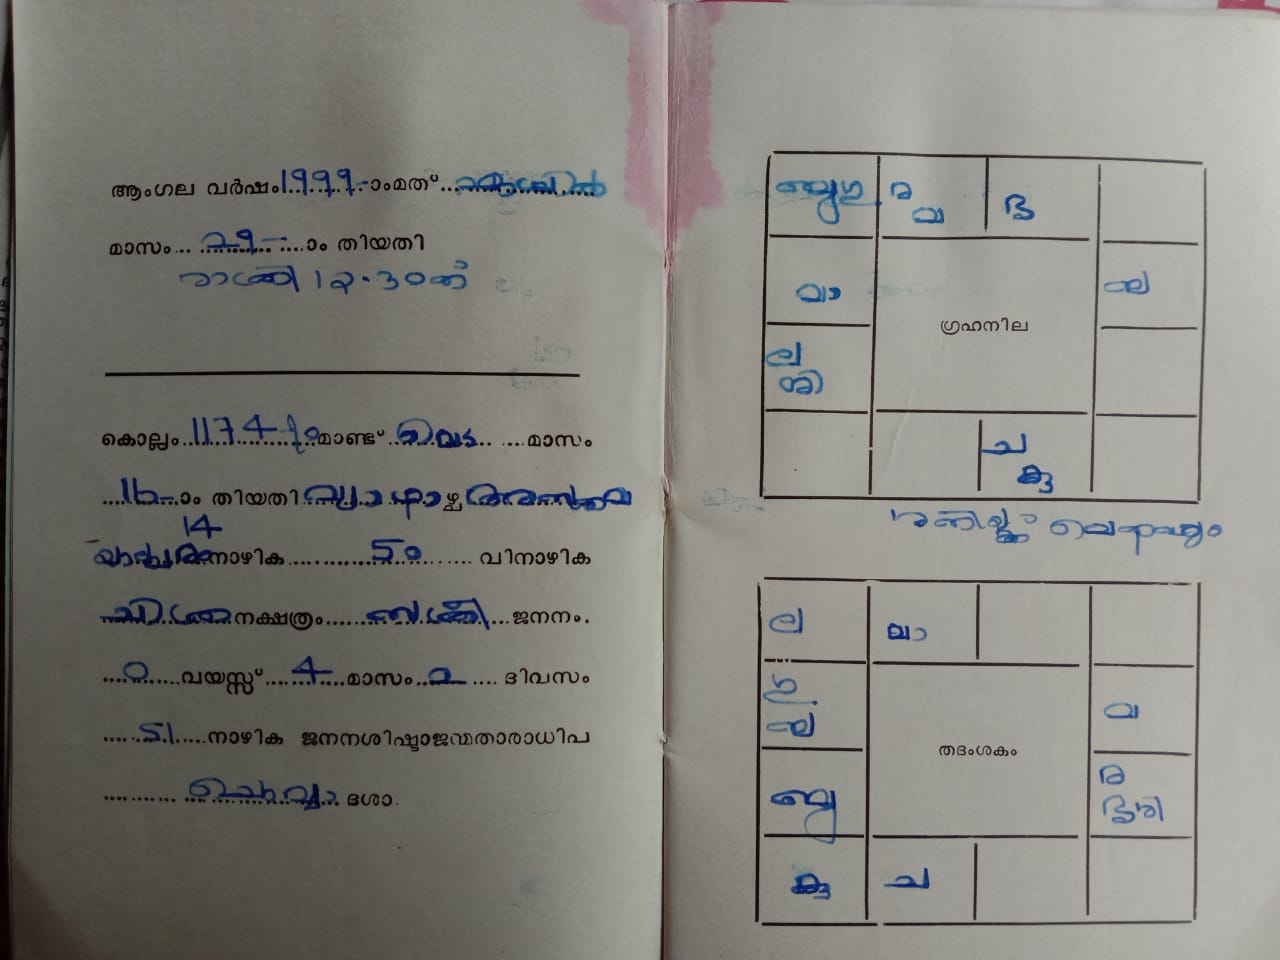 ആംഗല വർഷം 1999-ാംമത് ഏപ്രിൽ
മാസം 29-ാം തിയതി
രാത്രി 12.30ന്
കൊല്ലം 1174-ാമാണ്ട് മേട മാസം
16-ാം തിയതി വ്യാഴാഴ്ച അസ്തമ
14
നാഴിക 50 വിനാഴിക
ചിത്ര നക്ഷത്രം ജനനം.
0 വയസ്സ് 4 മാസം 2 ദിവസം
51 നാഴിക ജനനശിഷ്ടാജന്മതാരാധിപ
ചൊവ്വാ ദശാ.
ബു ഗു ര വ ശു
മാ മ
ല
ഗ്രഹനില
ച
കു
ല മാ
ഗു
മ
വ
തദംശകം
ബു
ര
ശു ശി
കു ച